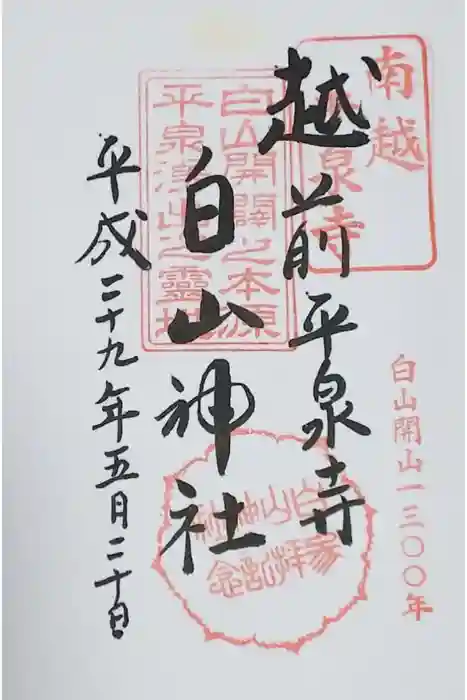 南越
平泉寺
越前平泉寺
白山開山一三〇〇年
白山開闢之本源
平泉湧出之靈地
白山神社
白山神社
参拝記念
平成二十九年五月二十日